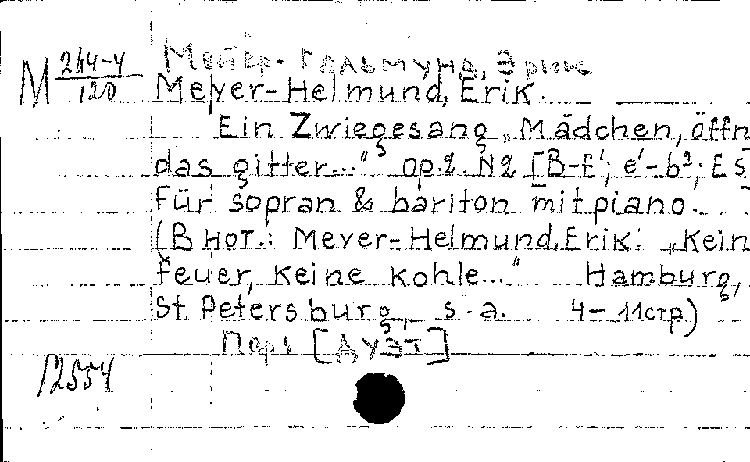 М 244-4/120
Мейер-Гельмунд, Эрик
Meyer-Helmund, Erik.
Ein Zwiegesang „Mädchen, öffn
das gitter..." op.2. N2 [B-f¹; e¹-b²; Es
für sopran & bariton mit piano...
(В нот.: Meyer-Helmund, Erik: „Kein
feuer, keine kohle..." Hamburg,
St Petersburg, s.a. 4-11стр)
Парт [Дуэт]
12554